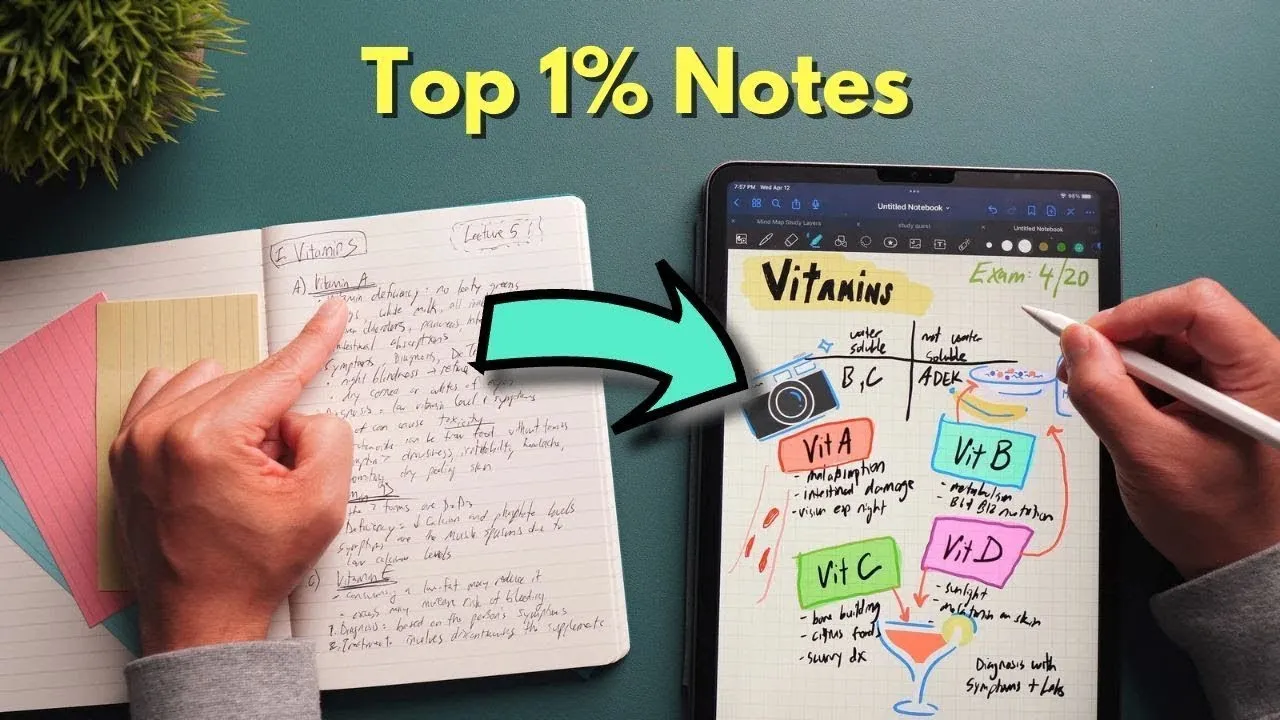 Top 1% Notes
I Vitamins
Lecture 5
A) Vitamin A
deficiency: no leafy greens
white milk, all
disorders, pancreas
intestinal absorptions
Symptoms, Diagnosis,
night blindness →
dry cornea or
= low vitamin level + symptoms
can cause toxicity
can be from food without
drowsiness, irritability, headache,
dry peeling skin
2 forms are D2D3
Deficiency = ↓ calcium and phosphate levels
Symptoms are the muscle spasms due to
low calcium levels
C) Vitamin E
- consuming a low-fat may reduce it
- excess may increase risk of bleeding
1. Diagnosis: based on the person's symptoms
2. Treatment: involves discontinuing the supplements
7:57 PM Wed Apr 12
98%
Untitled Notebook
Mind Map Study Layers
study quest
Untitled Notebook
Vitamins
Exam: 4/20
water soluble
not water soluble
B, C
ADEK
Vit A
- malabsorption
- intestinal damage
- vision esp night
Vit B
- metabolism
- B6 & B12 nutrition
Vit C
- bone building
- citrus foods
- scurvy dx
Vit D
- sunlight
- melatonin on skin
Diagnosis with
Symptoms + Labs